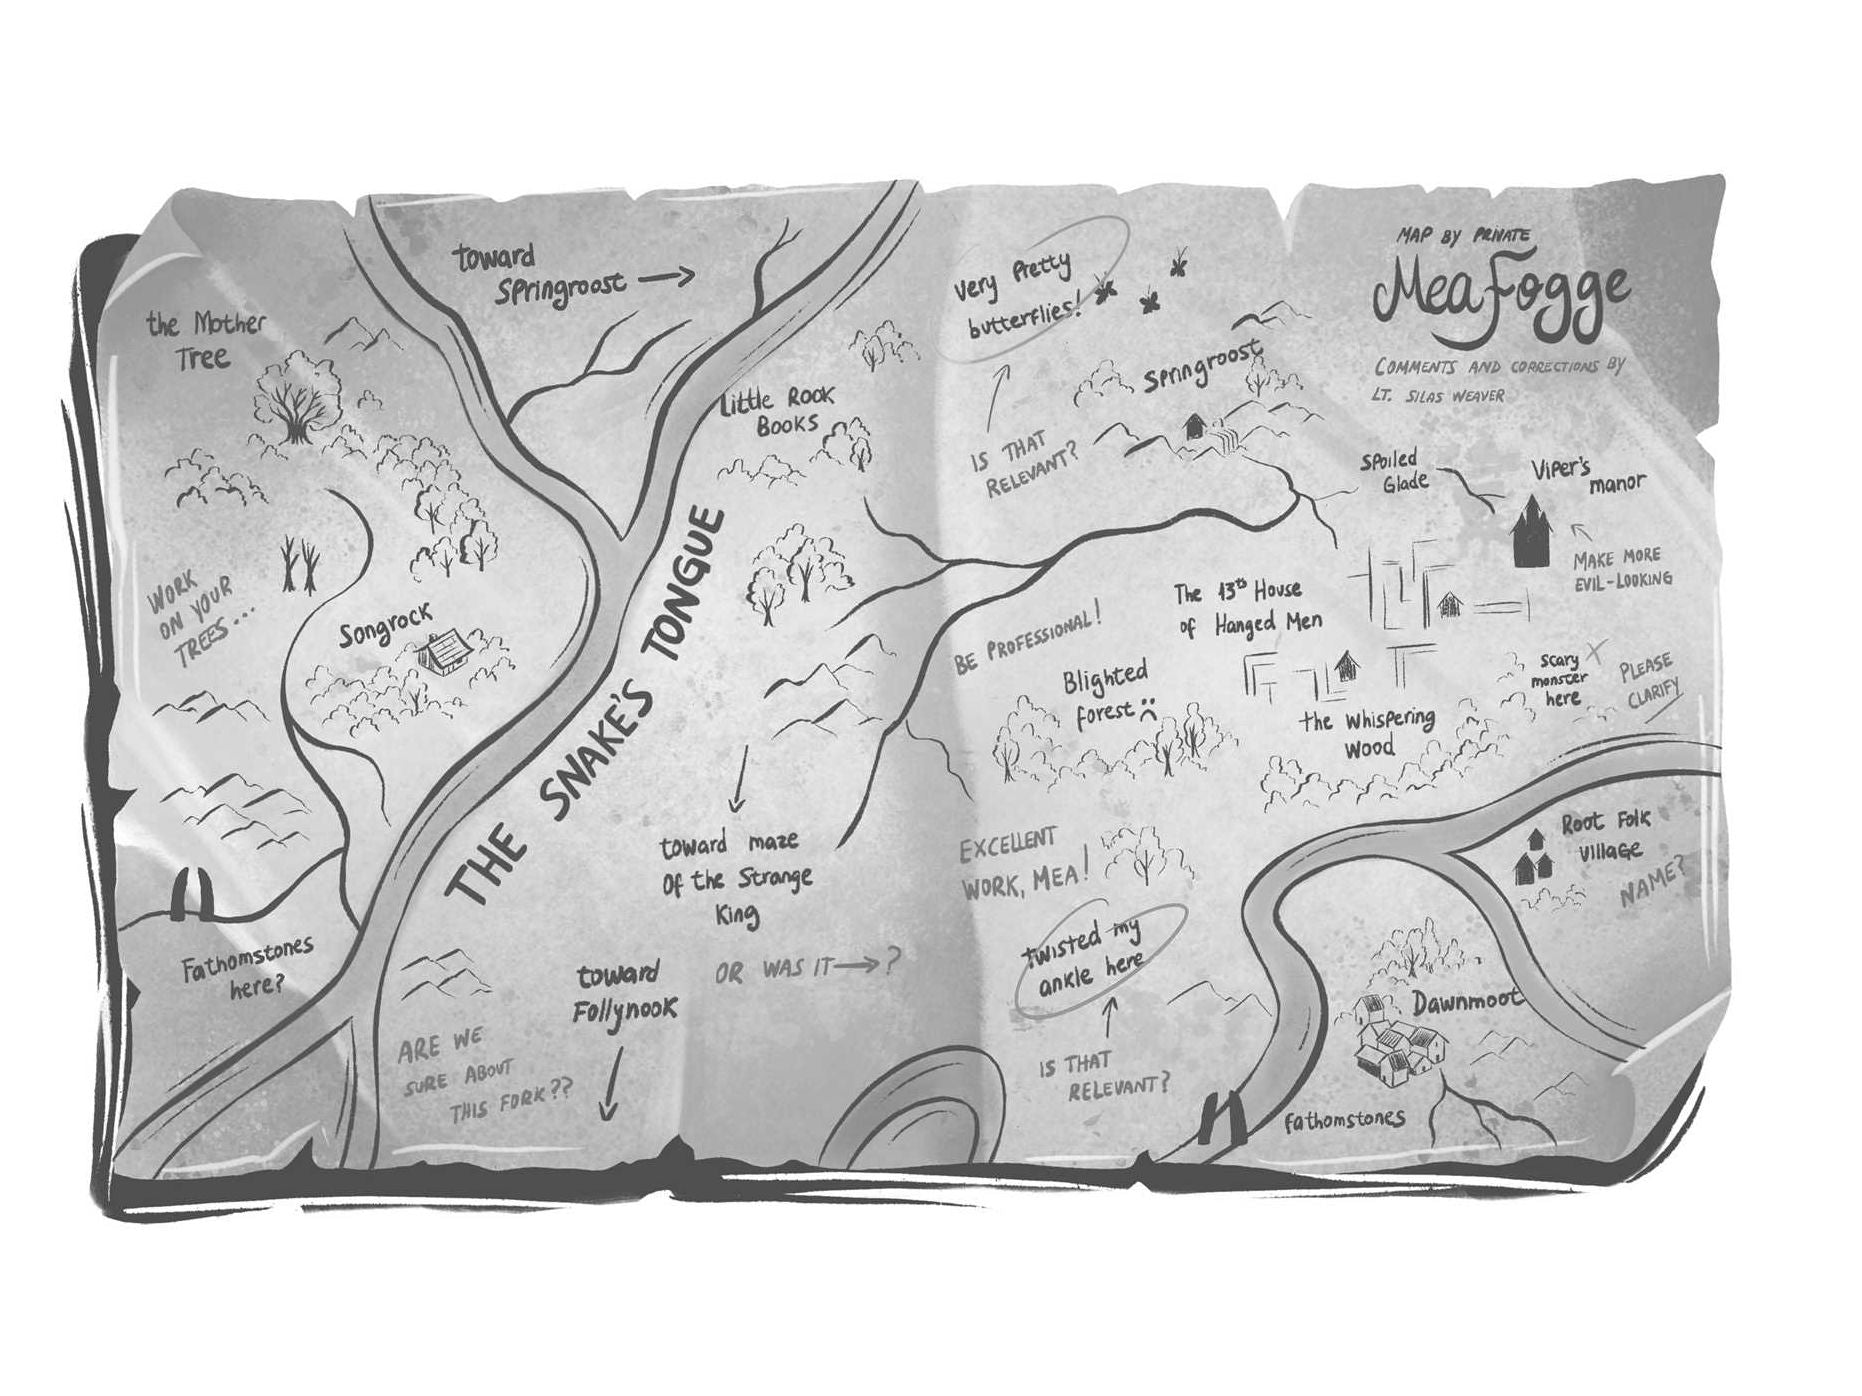 toward
Springroost
the Mother
Tree
Little Rook
Books
WORK
ON YOUR
TREES...
Songrock
THE SNAKE'S TONGUE
toward maze
Of the Strange
King
OR WAS IT →?
Fathomstones
here?
toward
Follynook
ARE WE
SURE ABOUT
THIS FORK??
very pretty
butterflies!
IS THAT
RELEVANT?
Springroost
MAP BY PRIVATE
Mea Fogge
COMMENTS AND CORRECTIONS BY
LT. SILAS WEAVER
Spoiled
Glade
Viper's
manor
MAKE MORE
EVIL-LOOKING
The 13th House
of Hanged Men
BE PROFESSIONAL!
Blighted
forest :(
scary
monster
here
X
PLEASE
CLARIFY
the Whispering
Wood
EXCELLENT
WORK, MEA!
Root Folk
village
NAME?
twisted my
ankle here
IS THAT
RELEVANT?
Dawnmoot
fathomstones